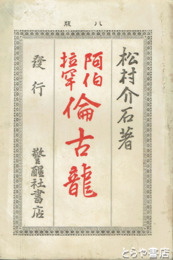 版八
松村介石著
阿伯拉罕倫古龍
發行
警醒社書店
とらや書店